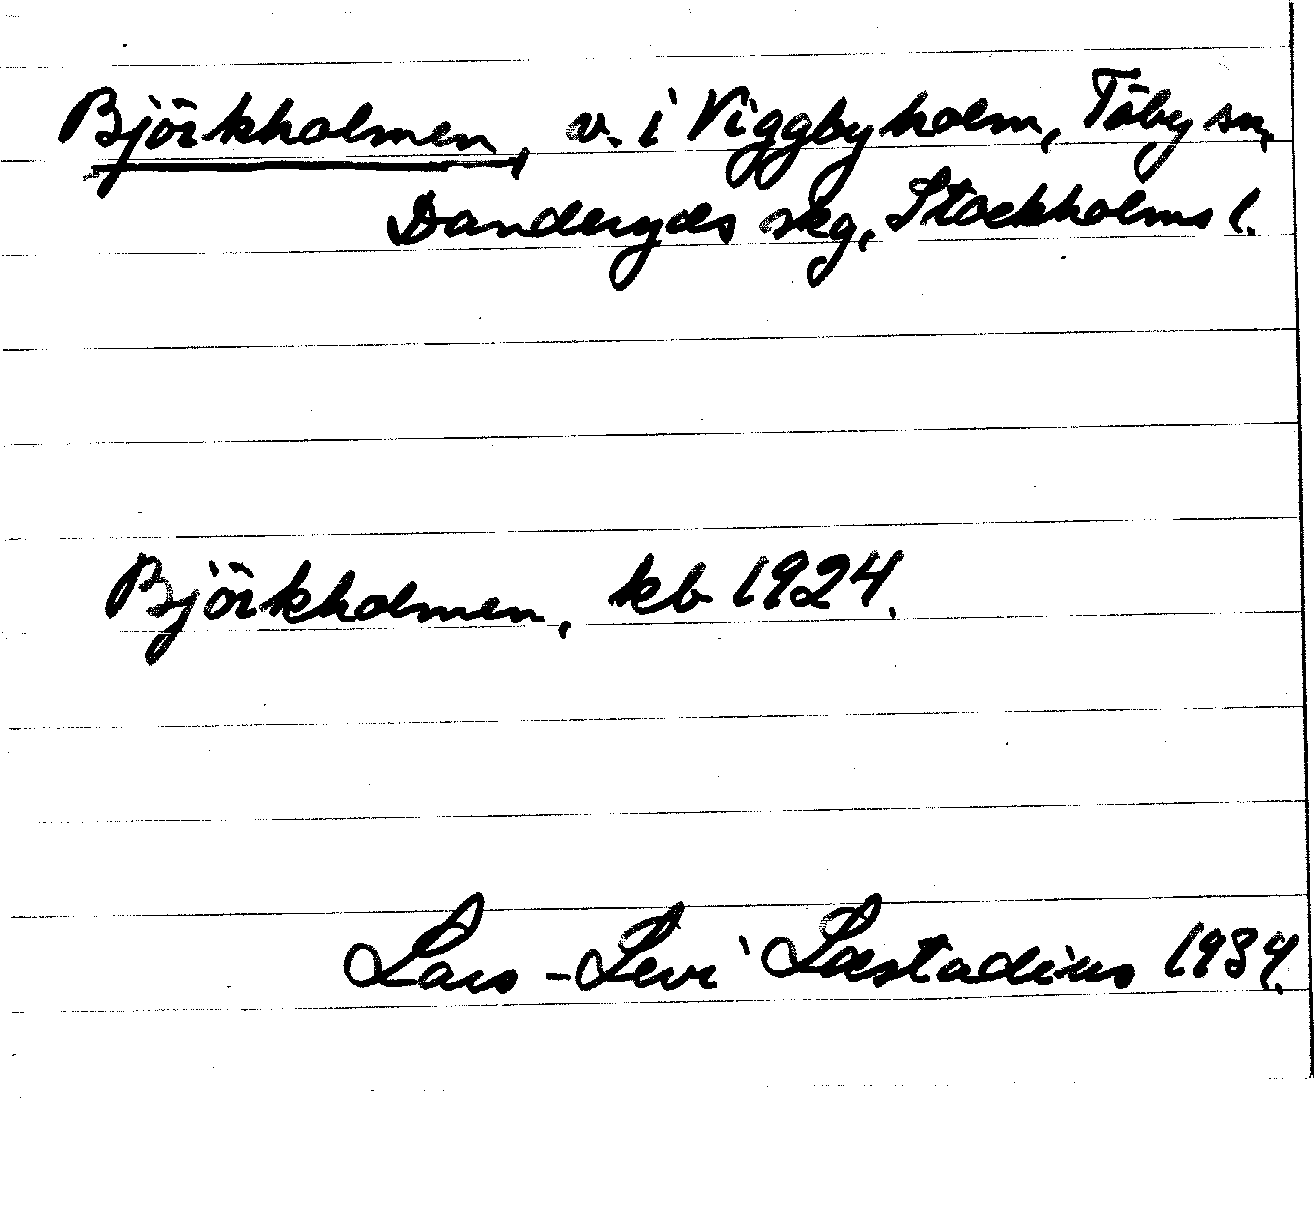 Björkholmen, v. i Viggbyholm, Täby sn,
Danderyds skg, Stockholms l.
Björkholmen, kb 1924.
Lars-Levi Læstadius 1934.